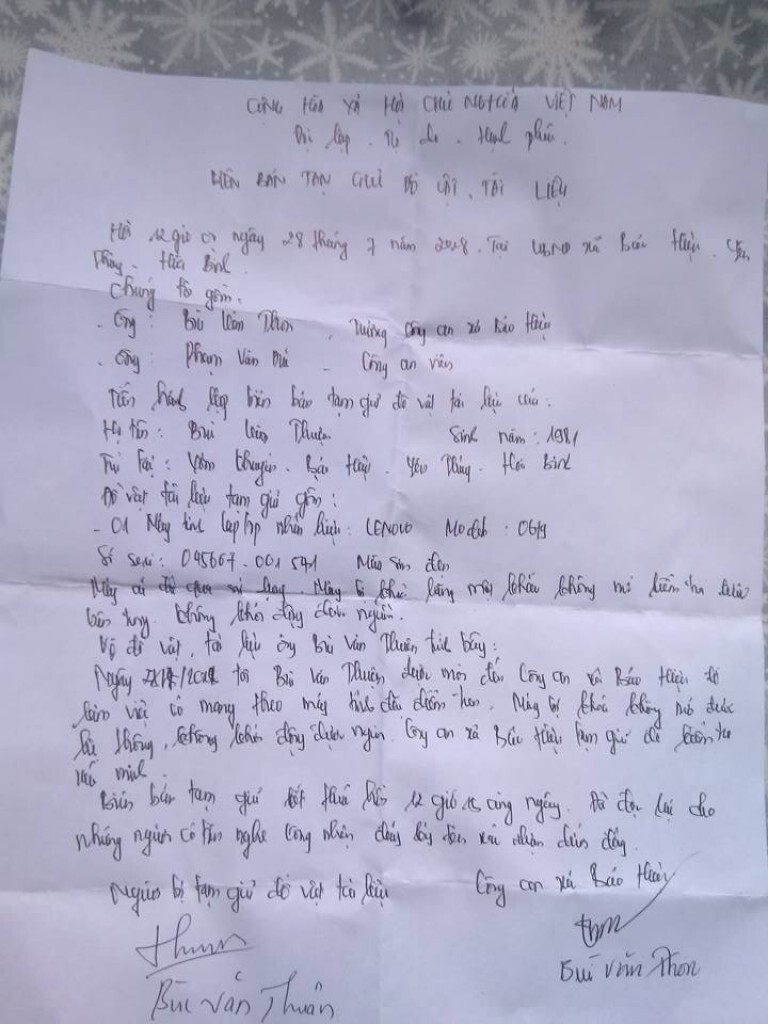 CỘNG HÒA XÃ HỘI CHỦ NGHĨA VIỆT NAM
Độc lập. Tự do. Hạnh phúc.
BIÊN BẢN TẠM GIỮ ĐỒ VẬT, TÀI LIỆU
Hồi 12 giờ ngày 28 tháng 7 năm 2018. Tại UBND xã Bảo Hiệu. Yên
Thủy. Hòa Bình.
Chúng tôi gồm:
- Ông: Bùi Văn Thon, Trưởng Công an xã Bảo Hiệu
- Ông: Phạm Văn - Công an viên
Tiến hành lập biên bản tạm giữ đồ vật tài liệu của:
Họ tên: Bùi Văn Thuận Sinh năm: 1981
Trú tại: Bảo Hiệu. Yên Thủy. Hòa Bình
Đồ vật tài liệu tạm giữ gồm:
- 01 Máy tính laptop nhãn hiệu: LENOVO Model: 0679
Số seri: 045667.001541 Màu sơn đen
Máy cũ đã qua sử dụng. Máy bị khóa bằng mật khẩu không mở kiểm tra được
bên trong. không khởi động được nguồn.
Về đồ vật, tài liệu ông Bùi Văn Thuận trình bày:
Ngày tôi Bùi Văn Thuận được mời đến Công an xã Bảo Hiệu để
làm việc có mang theo máy tính đặc điểm trên. Máy bị khóa không mở được
hệ thống, không khởi động được nguồn. Công an xã Bảo Hiệu tạm giữ để kiểm tra
xác minh.
Biên bản tạm giữ kết thúc hồi 12 giờ 15 cùng ngày. Đã đọc lại cho
những người có tên nghe công nhận đúng ký tên xác nhận dưới đây.
Người bị tạm giữ đồ vật tài liệu Công an xã Bảo Hiệu
thuan thon
Bùi Văn Thuận Bùi Văn Thon